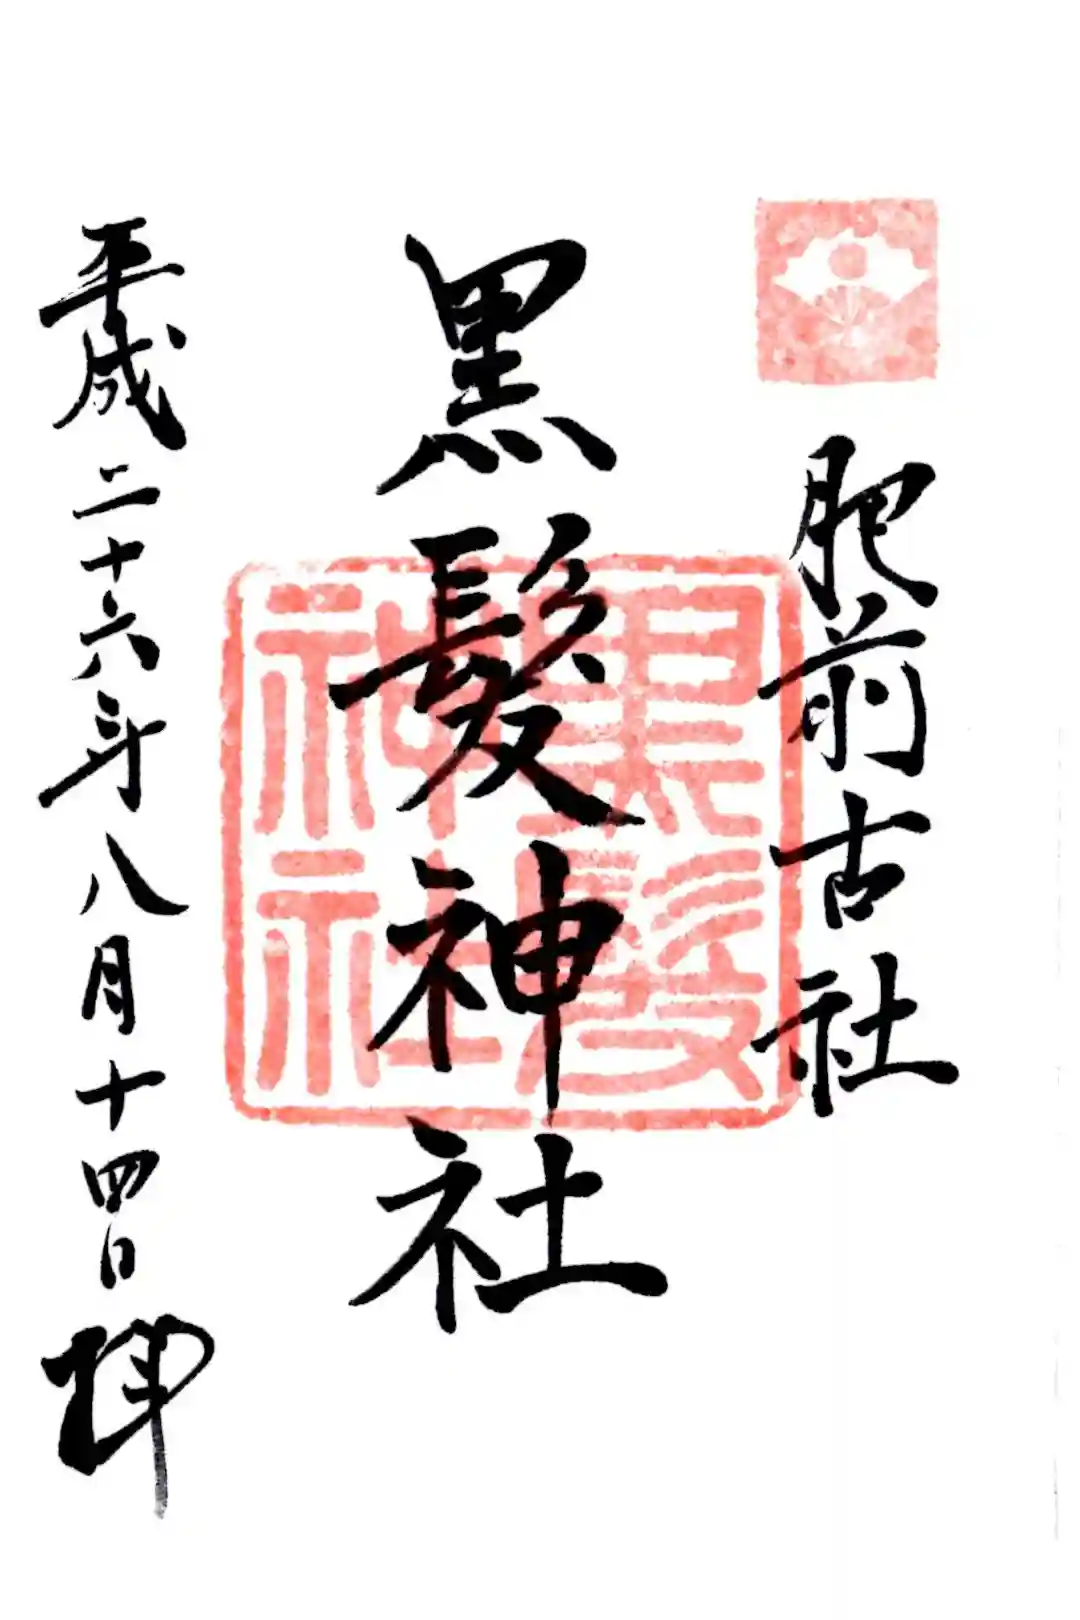 肥前古社
黒髪神社
黒髪神社
平成二十六年八月十四日拝